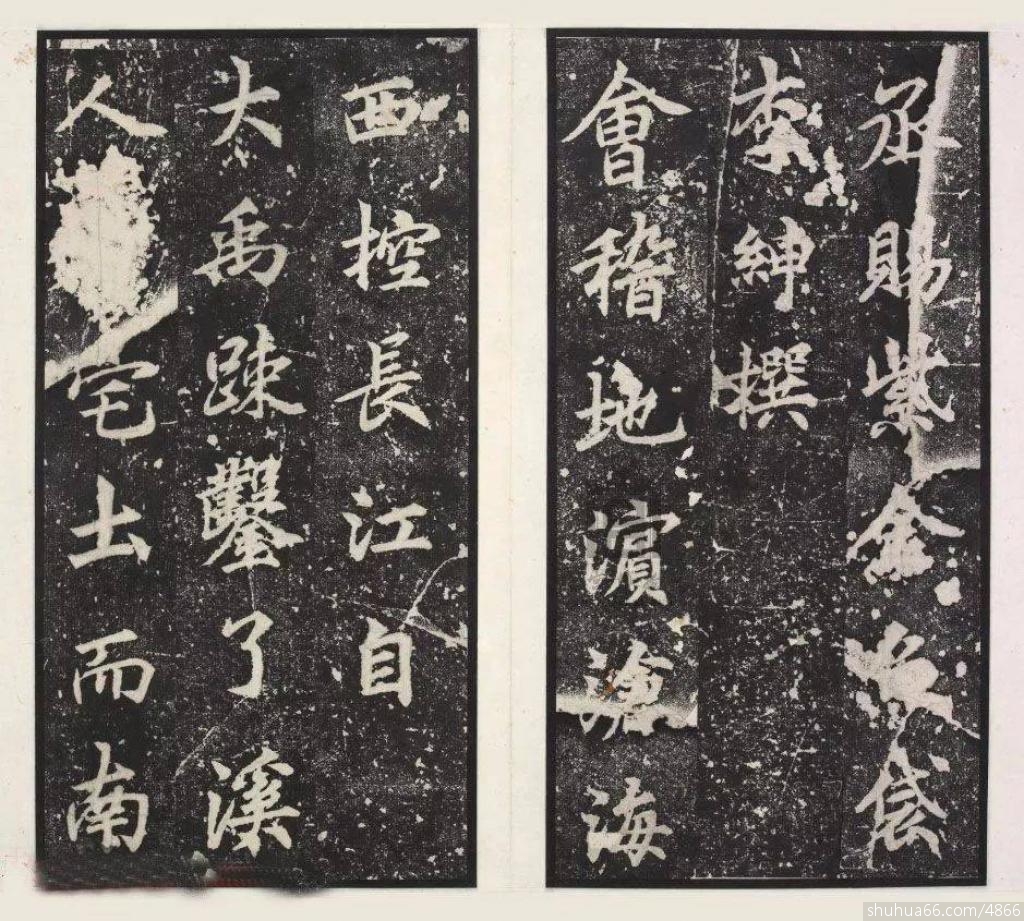 丞賜紫金魚袋
李紳撰
會稽地濵滄海
西控長江自
大禹踈鑿了溪
人宅土而南
shuhua66.com/4866